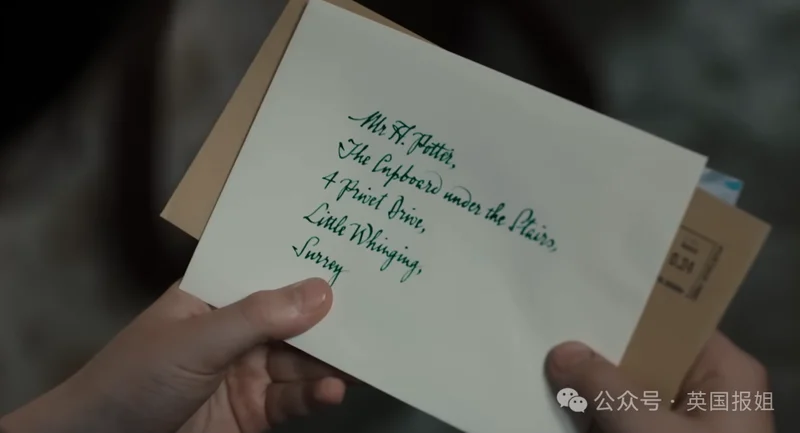 Mr H. Potter,
The Cupboard under the Stairs,
4 Privet Drive,
Little Whinging,
Surrey
0.34
公众号 · 英国报姐